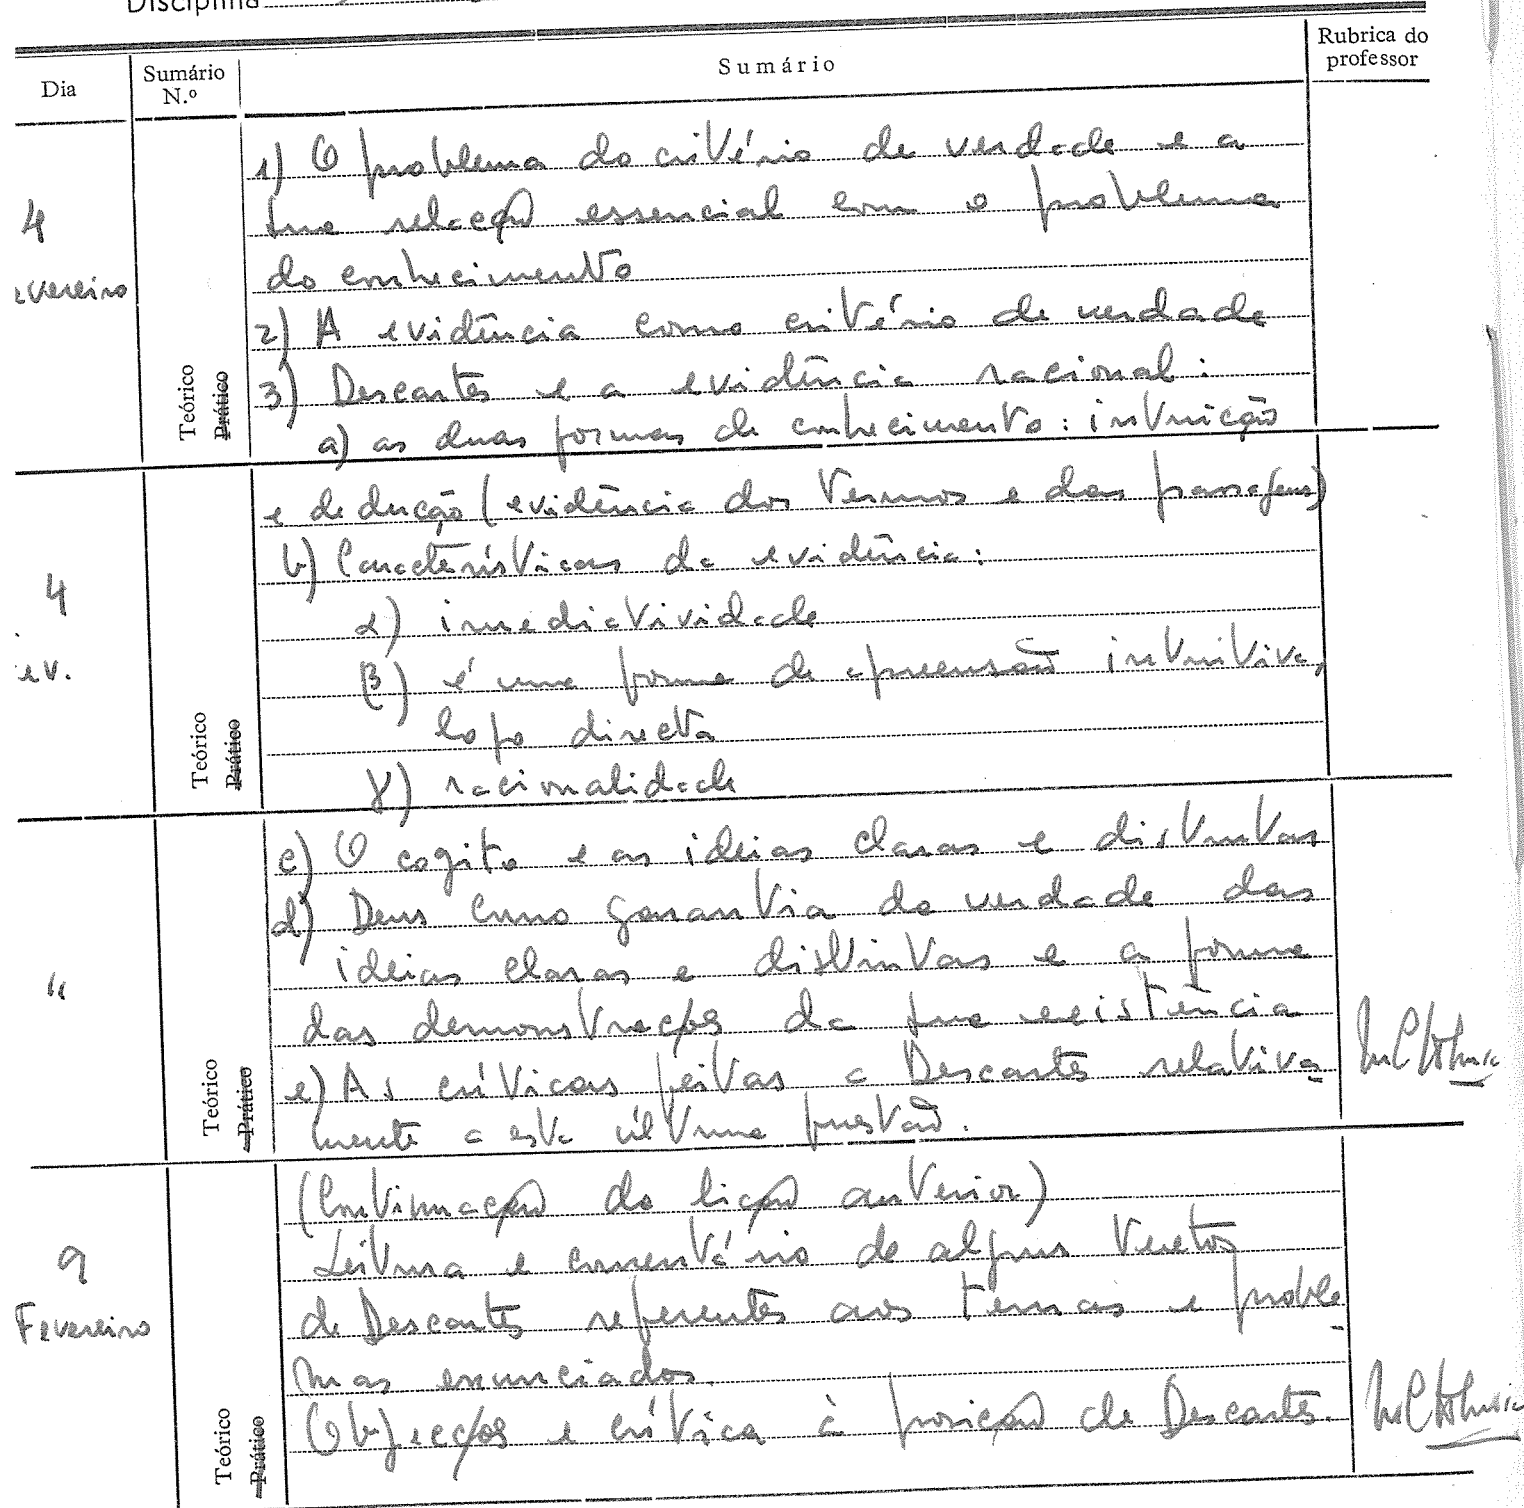 Disciplina
Dia
Sumário N.º
Sumário
Rubrica do professor
4
evereiro
Teórico
Prático
1) O problema do critério de verdade e a
sua relação essencial com o problema
do conhecimento
2) A evidência como critério de verdade
3) Descartes e a evidência racional:
a) as duas formas de conhecimento: intuição
4
ev.
Teórico
Prático
e dedução (evidência dos termos e das passagens)
b) Características da evidência:
α) imediatividade
β) é uma forma de apreensão intuitiva,
logo directa
γ) racionalidade
"
Teórico
Prático
c) O cogito e as ideias claras e distintas
d) Deus como garantia da verdade das
ideias claras e distintas e a forma
das demonstrações da sua existência
e) As críticas feitas a Descartes relativa
mente a esta última questão.
9
Fevereiro
Teórico
Prático
(Continuação da lição anterior)
Leitura e comentário de alguns textos
de Descartes referentes aos temas e proble
mas enunciados.
Objecções e crítica à posição de Descartes.